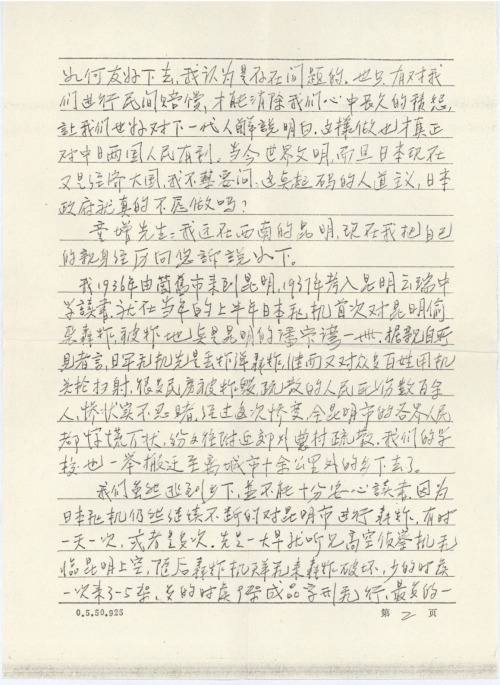 如何友好下去,我认为是存在问题的。也只有对我
们进行民间赔偿,才能消除我们心中长久的积怨,
让我们也好对下一代人解说明白。这样做也才真正
对中日两国人民有利。当今世界文明,而且日本现在
又是经济大国,我不禁要问,这点起码的人道主义,日本
政府就真的不愿做吗?
童增先生:我远在西南的昆明,现在我把自己
的亲身经历向您诉说如下。
我1936年由箇舊市来到昆明,1937年考入昆明云瑞中
学读书,就在当年的上半年日本飞机首次对昆明偷
袭轰炸,被炸地点是昆明的潘家湾一带。据亲自所
见者言,日军飞机先是丢炸弹轰炸,继而又对众多百姓用机
关枪扫射,很多民房被炸毁,疏散的人民死伤数百余
人,惨状实不忍睹。经过这次惨变,全昆明市的各界人民
都惊慌万状,纷纷往附近郊外农村疏散,我们的学
校也一举搬迁至离城市十余公里外的乡下去了。
我们虽然逃到乡下,并不能十分安心读书,因为
日本飞机仍然继续不断的对昆明市进行轰炸,有时
一天一次,或者是多次。先是一大早就听见高空侦察机飞
临昆明上空,随后轰炸机群飞来轰炸破坏,少的时候
一次来3-5架,多的时候9架成品字形飞行,最多的一
0.5.50.925
第2页